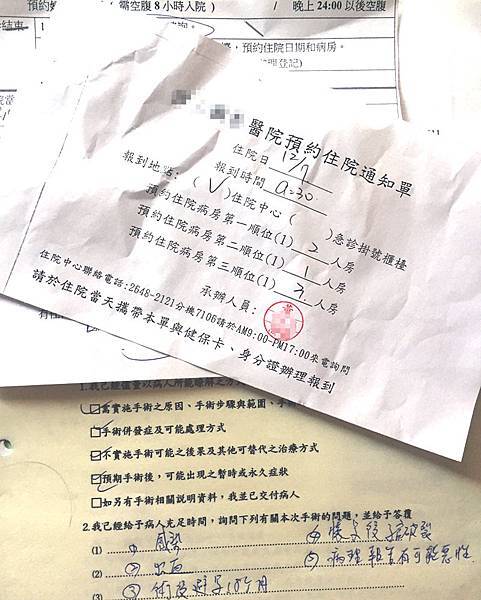 當空腹 8 小時入院 ) / 晚上 24:00 以後空腹
，預約住院日期和病房。
醫院預約住院通知單
住院日 12/7
報到時間 9:30
報到地點：( ✓ )住院中心( )急診掛號櫃檯
預約住院病房第一順位(1) 2 人房
預約住院病房第二順位(1) 1 人房
預約住院病房第三順位(1) 人房
承辦人員：
住院中心聯絡電話:2648-2121分機7106請於AM9:00-PM17:00來電詢問
請於住院當天攜帶本單與健保卡、身分證辦理報到
1.我已經儘量以病人所能瞭解之方
☑當實施手術之原因、手術步驟與範圍、手
☐手術併發症及可能處理方式
☑不實施手術可能之後果及其他可替代之治療方式
☑預期手術後，可能出現之暫時或永久症狀
☐如另有手術相關說明資料，我並已交付病人
2.我已經給予病人充足時間，詢問下列有關本次手術的問題，並給予答覆
(1) ① 感染 ④ 懷孕後子宮破裂
(2) ② 出血 ⑤ 病理報告有可能惡性
(3) ③ 術後避孕